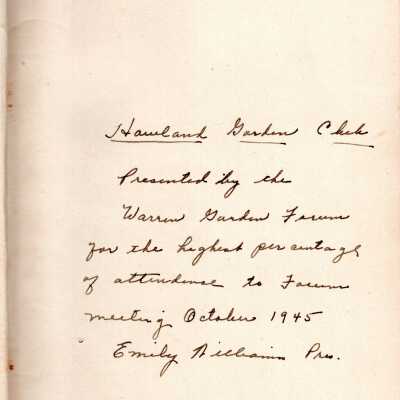 Howland Garden Club
Presented by the
Warren Garden Forum
for the highest percentage
of attendence to Forum
meeting October 1945
Emily Williams Pres.